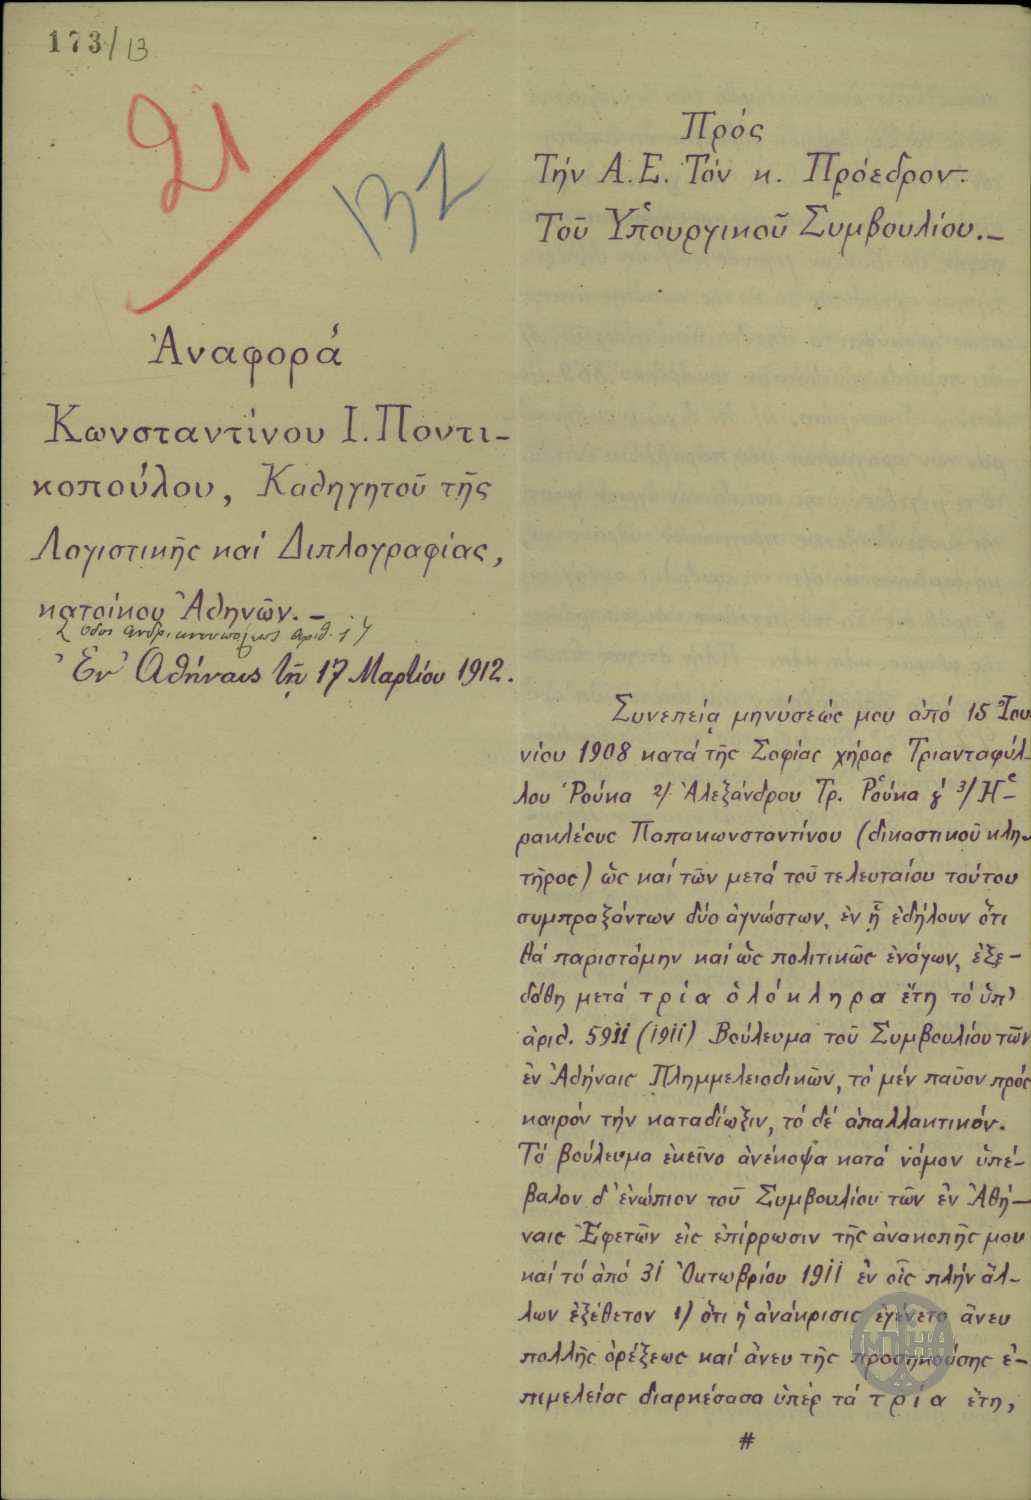 173/13
21
132
Πρός
Τήν Α.Ε. Τόν κ. Πρόεδρον
Τοῦ Ὑπουργικοῦ Συμβουλίου.–
Ἀναφορά
Κωνσταντίνου Ι. Ποντι-
κοπούλου, Καθηγητοῦ τῆς
Λογιστικῆς καί Διπλογραφίας,
κατοίκου Ἀθηνῶν.–
ὁδος Ανδριανουπόλεως αριθ. 17
Ἐν Ἀθήναις τῇ 17 Μαρτίου 1912.
Συνεπείᾳ μηνύσεώς μου ἀπό 15 Ἰου
νίου 1908 κατά τῆς Σοφίας χήρας Τριανταφύλ-
λου Ῥούκα 2/ Ἀλεξάνδρου Τρ. Ῥούκα ϗ 3/ Ἡ-
ρακλέους Παπακωνσταντίνου (δικαστικοῦ κλη-
τῆρος) ὡς καί τῶν μετά τοῦ τελευταίου τούτου
συμπραξάντων δύο ἀγνώστων, ἐν ᾗ ἐδήλουν ὅτι
θά παριστάμην καί ὡς πολιτικῶς ἐνάγων, ἐξε-
δόθη μετά τρία ὁλόκληρα ἔτη τό ὑπ'
ἀριθ. 5911 (1911) Βούλευμα τοῦ Συμβουλίου τῶν
ἐν Ἀθήναις Πλημμελειοδικῶν, τό μέν παῦον πρός
καιρόν τήν καταδίωξιν, τό δέ ἀπαλλακτικόν.
Τό βούλευμα ἐκεῖνο ἀνέκοψα κατά νόμον ὑπέ-
βαλον δ' ἐνώπιον τοῦ Συμβουλίου τῶν ἐν Ἀθή-
ναις Ἐφετῶν εἰς ἐπίρρωσιν τῆς ἀνακοπῆς μου
καί τό ἀπό 31 Ὀκτωβρίου 1911 ἐν οἷς πλήν ἄλ-
λων ἐξέθετον 1/ ὅτι ἡ ἀνάκρισις ἐγένετο ἄνευ
πολλῆς ὀρέξεως καί ἄνευ τῆς προσηκούσης ἐ-
πιμελείας διαρκέσασα ὑπέρ τά τρία ἔτη,
#